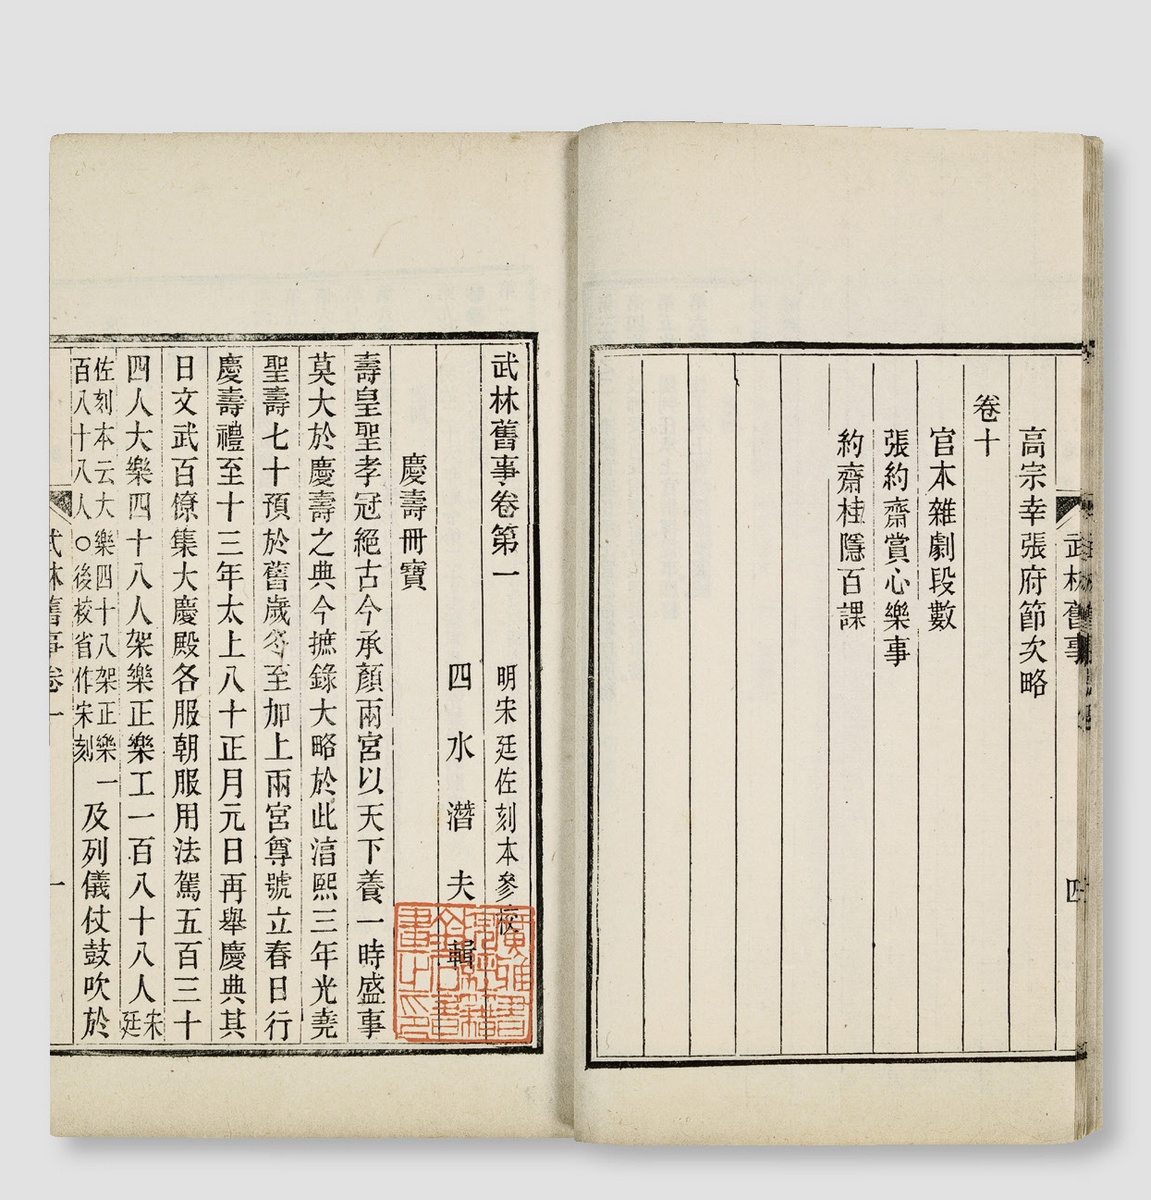 高宗幸張府節次略
卷十
官本雜劇段數
張約齋賞心樂事
約齋桂隱百課
武林舊事
四
武林舊事卷第一
明宋廷佐刻本參校
四水潛夫輯
慶壽冊寶
壽皇聖孝冠絕古今承顏兩宮以天下養一時盛事
莫大於慶壽之典今摭錄大略於此淳熙三年光堯
聖壽七十預於舊歲冬至加上兩宮尊號立春日行
慶壽禮至十三年太上八十正月元日再舉慶典其
日文武百僚集大慶殿各服朝服用法駕五百三十
四人大樂四十八人架樂正樂工一百八十八人宋廷
佐刻本云大樂四十八架正樂一百八十八人○後校省作宋刻
及列儀仗鼓吹於
武林舊事卷一
一